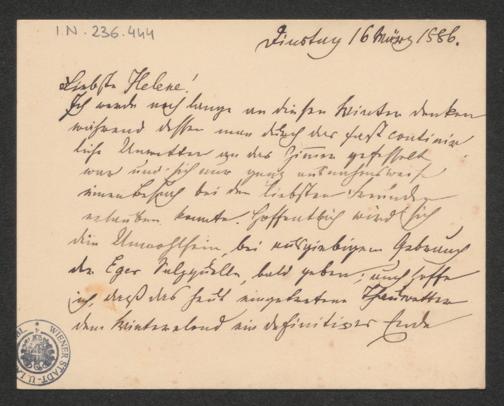 I.N. 236.444
Dinstag 16 März 1886.
Liebste Helene!
Ich werde noch lange an diesen Winter denken
während dessen man durch das fast continuir
liche Unwetter an das Zimmer gefesselt
war und sich nur ganz ausnahmsweise
einen Besuch bei den liebsten Freunden
erlauben konnte. Hoffentlich wird sich
dein Unwohlsein, bei ausgiebigem Gebrauch
der Eger Salzquelle, bald geben; auch hoffe
ich, daß das heut eingetretene Thauwetter
dem Winterelend ein definitives Ende
WIENER STADT- U.